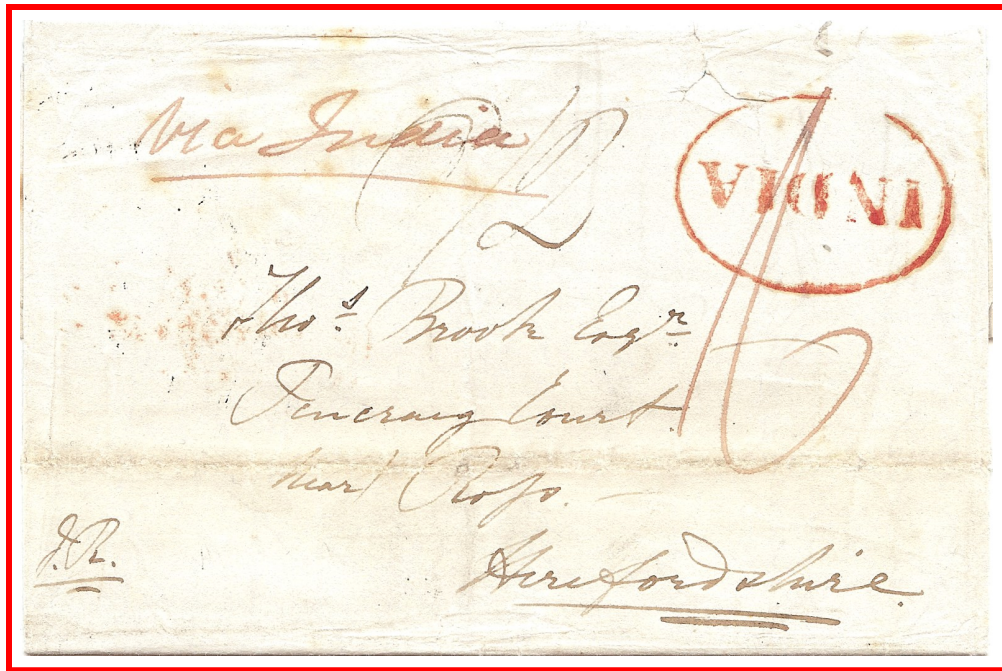 via India
INDIA
Thos. Brook Esqr.
Pencraig Court
near Ross.
Herefordshire.
J.R.